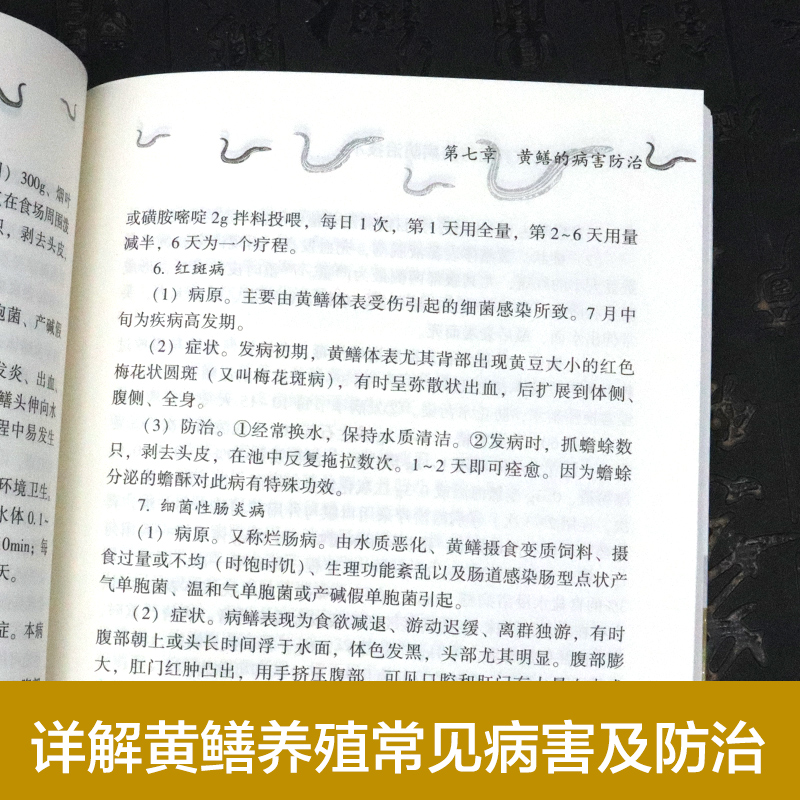 ）300g、烟叶
在食场周围泼
只，剥去头皮，
胞菌、产碱假
发炎、出血、
鳝头伸向水
程中易发生
环境卫生。
水体 0.1~
0min；每
天。
症。本病
第七章 黄鳝的病害防治
或磺胺嘧啶 2g 拌料投喂，每日 1 次，第 1 天用全量，第 2~6 天用量
减半，6 天为一个疗程。
6. 红斑病
（1）病原。主要由黄鳝体表受伤引起的细菌感染所致。7 月中
旬为疾病高发期。
（2）症状。发病初期，黄鳝体表尤其背部出现黄豆大小的红色
梅花状圆斑（又叫梅花斑病），有时呈弥散状出血，后扩展到体侧、
腹侧、全身。
（3）防治。①经常换水，保持水质清洁。②发病时，抓蟾蜍数
只，剥去头皮，在池中反复拖拉数次。1~2 天即可痊愈。因为蟾蜍
分泌的蟾酥对此病有特殊功效。
7. 细菌性肠炎病
（1）病原。又称烂肠病。由水质恶化、黄鳝摄食变质饲料、摄
食过量或不均（时饱时饥）、生理功能紊乱以及肠道感染肠型点状产
气单胞菌、温和气单胞菌或产碱假单胞菌引起。
（2）症状。病鳝表现为食欲减退、游动迟缓、离群独游，有时
腹部朝上或头长时间浮于水面，体色发黑，头部尤其明显。腹部膨
大，肛门红肿凸出，用手挤压腹部，可见口腔和肛门有
详解黄鳝养殖常见病害及防治